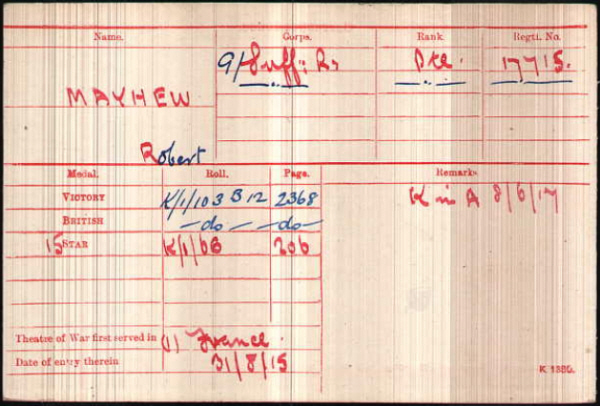 Name. Corps. Rank. Regtl. No.
9/Suff: R. Pte. 17715.
MAYHEW
Robert
Medal. Roll. Page. Remarks.
VICTORY K/1/103 B 12 2368 K in A 8/6/17
BRITISH —do— —do—
15 STAR K/1/6B 206
Theatre of War first served in (1) France.
Date of entry therein 31/8/15
K 1380.